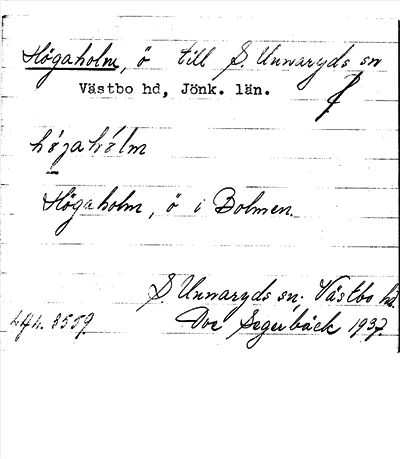 Högaholm, ö till S. Unnaryds sn
Västbo hd, Jönk. län.
Högaholm, ö i Bolmen.
S. Unnaryds sn, Västbo hd.
Segerbäck 1937.
3559.